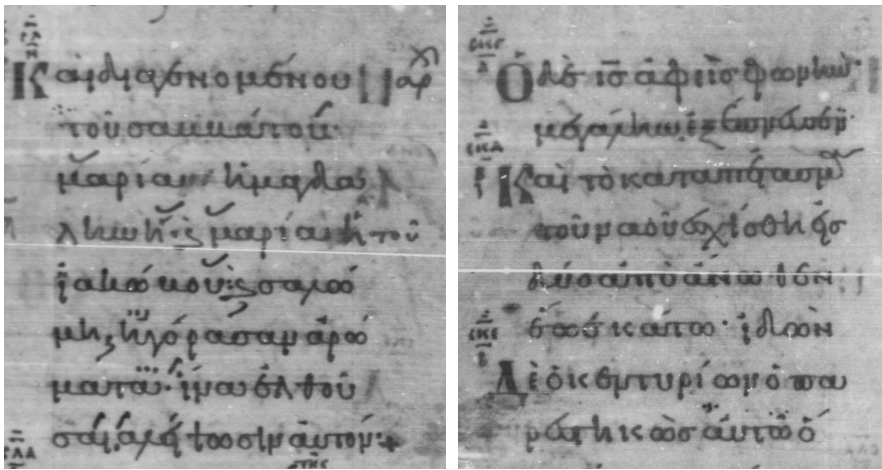 Καὶ διαγενομένου αρχ
τοῦ σαββάτου·
μαρία ἡ μαγδα
ληνὴ· ϗ μαρία ἡ τοῦ
ἰακώβου· ϗ σαλώ
μη, ἠγόρασαν ἀρώ
ματα· ἵνα ἐλθοῦ
σαι, ἀλείψωσιν αὐτόν·+
Ὁ δὲ ις ἀφεὶς φωνὴν
μεγάλην ἐξέπνευσεν·
Καὶ τὸ καταπέτασμα
τοῦ ναοῦ ἐσχίσθη εἰς
δύο ἀπὸ ἄνωθεν
ἕως κάτω· ἰδὼν
Δὲ ὁ κεντυρίων ὁ πα
ρεστηκὼς αὐτῶ ὁ